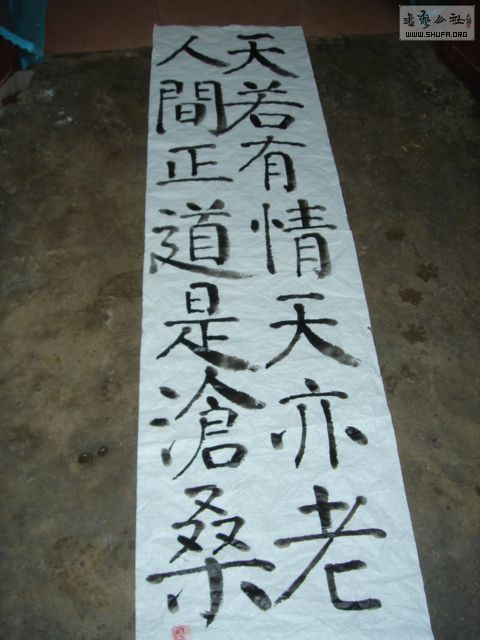 天若有情天亦老
人間正道是滄桑
書藝公社
WWW.SHUFA.ORG